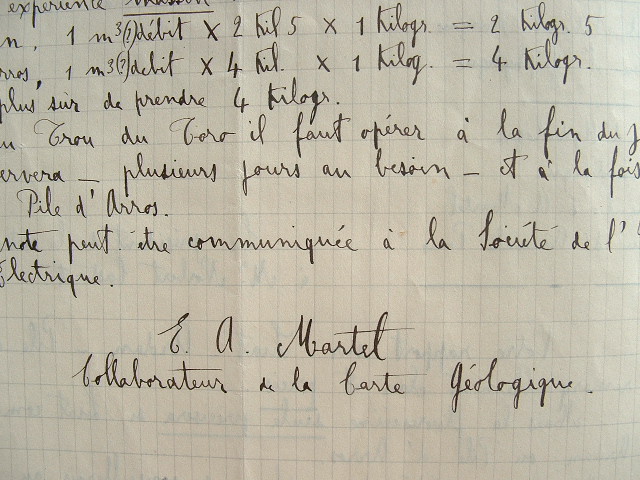 expérience Masson
n, 1 m³(?) débit × 2 kil 5 × 1 Kilogr. = 2 Kilogr. 5
rros, 1 m³(?) debit × 4 kil. × 1 Kilog. = 4 Kilogr.
plus sûr de prendre 4 Kilogr.
u Trou du Toro il faut opérer à la fin du j
ervera — plusieurs jours au besoin — et à la fois
Pile d'Arros.
note peut être communiquée à la Société de l'
Electrique.
E. A. Martel
Collaborateur de la Carte Géologique.